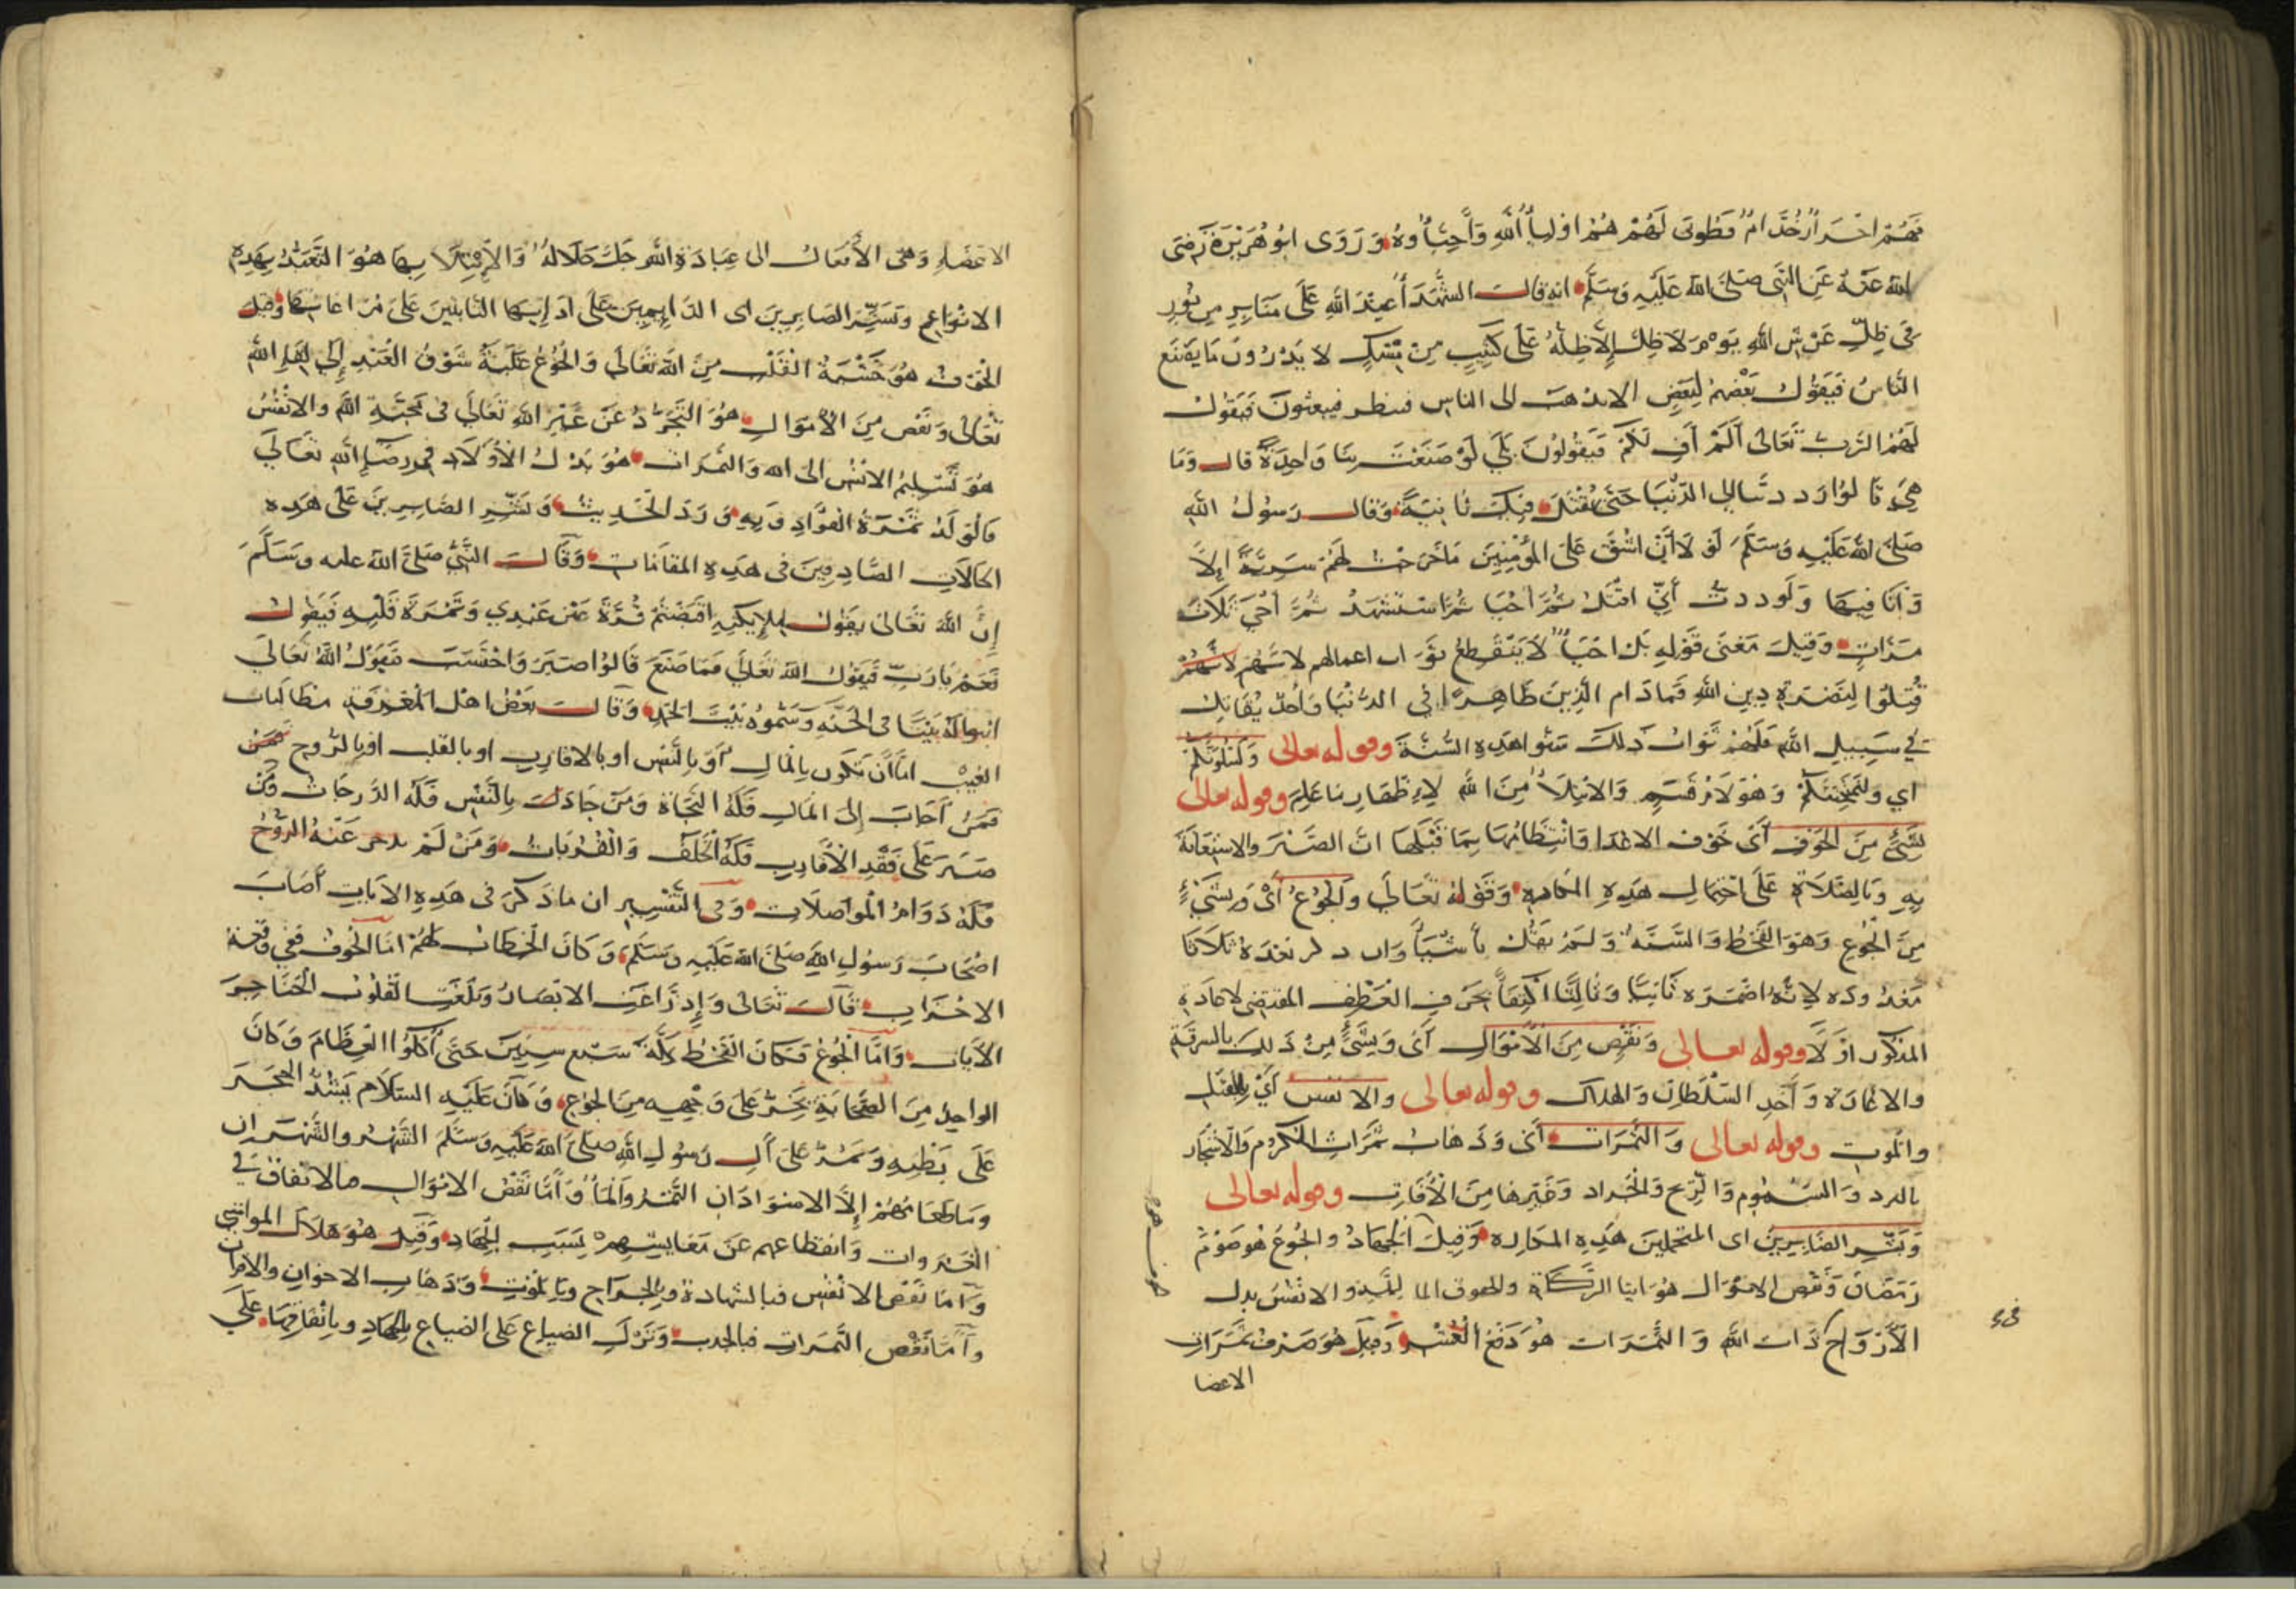 فهم احرار خدام فطوبى لهم هم اولياء الله واحباؤه وروى ابو هريرة رضي
الله عنه عن النبي صلى الله عليه وسلم انه قال الشهداء عند الله على منابر من نور
في ظل عرش الله يوم لا ظل إلا ظله على كثيب من مسك لا يدرون ما يصنع
الناس فيقول بعضهم لبعض الا نذهب الى الناس فننظر فيبعثون فيقول
لهم الرب تعالى ألم أف لكم فيقولون بلى لو صنعت بنا واحدة قال وما
هي قالوا رددتنا الى الدنيا حتى نقتل فيك ثانية وقال رسول الله
صلى الله عليه وسلم لو لا أن اشق على المؤمنين ما خرجت لهم سرية إلا
وأنا فيها ولوددت أني اقتل ثم احيا ثم استشهد ثم أحي ثلاث
مرات وقيل معنى قوله بل احياء لا ينقطع ثواب اعمالهم لانهم لانهم
قتلوا لنصرة دين الله فما دام الدين ظاهرا في الدنيا واحد يقاتل
في سبيل الله فلهم ثواب ذلك سنوا هذه السنة وقوله تعالى ولنبلونكم
اي ولنمتحننكم وهو لام قسم والابتلاء من الله لإظهار ما علم وقوله تعالى
بشيء من الخوف أي خوف الاعداء وانتظامها بما قبلها ان الصبر والاستعانة
به وبالصلاة على احتمال هذه المكاره وقوله تعالى والجوع أي وبشيء
من الجوع وهو القحط والسنة ولم يقل بأشياء وان ذكر بعده ثلاثا
معدودة لانه اضمره ثانيا وثالثا اكتفاء بحرف العطف المقتضي لاعادة
المذكور اولا وقوله تعالى ونقص من الأموال أي وبشيء من ذلك بالسرقة
والاغارة وأخذ السلطان والهلاك وقوله تعالى والانفس أي بالقتل
والموت وقوله تعالى والثمرات أي وذهاب ثمرات الكروم والأشجار
بالبرد والسموم والريح والجراد وغيرها من الآفات وقوله تعالى
وبشر الصابرين اى المتحملين هذه المكاره وقيل الجهاد والجوع هو صوم
رمضان ونقص الاموال هو ايتاء الزكاة والانفس بذل
الأرواح ذات الله والثمرات هو دفع العشر وقيل هو صرف ثمرات
الاعضا
الاعضاء وهي الأفعال الى عبادة الله جل جلاله والابتلاء بها هو التعبد بهذه
الانواع وبشر الصابرين اى الدائمين على ادائها الثابتين على مراعاتها وقيل
الخوف هو خشية القلب من الله تعالى والجوع غلبة شوق العبد إلى لقاء الله
تعالى ونقص من الأموال هو التجرد عن غير الله تعالى في محبة الله والانفس
هو تسليم الانفس الى الله والثمرات هو بذل الأولاد في رضاء الله تعالى
فالولد ثمرة الفؤاد وبه ورد الحديث وبشر الصابرين على هذه
الحالات الصادقين في هذه المقامات وقال النبي صلى الله عليه وسلم
إن الله تعالى يقول لملائكته اقبضتم قرة عين عبدي وثمرة قلبه فيقول
نعم يا رب فيقول الله تعالى فما صنع قالوا صبر واحتسب فيقول الله تعالى
ابنوا له بيتا في الجنة وسموه بيت الحمد وقال بعض اهل المعرفة مطالبات
الغيب اما أن تكون بالمال أو بالنفس او بالاقارب او بالقلب او بالروح فمن
فمن أجاب إلى المال فله النجاة ومن جاد بالنفس فله الدرجات ومن
صبر على فقد الأقارب فله الخلف والقربات ومن لم يدخر عنه الروح
فله دوام المواصلات وفي التفسير ان ما ذكر في هذه الآيات أصاب
اصحاب رسول الله صلى الله عليه وسلم وكان الخطاب لهم اما الخوف ففي وقعة
الاحزاب قال تعالى وإذ زاغت الابصار وبلغت القلوب الحناجر
الآيات وأما الجوع فكان القحط سبع سنين حتى أكلوا العظام وكان
الواحد من الصحابة يخر على وجهه من الجوع وكان عليه السلام يشد الحجر
على بطنه ويمر على آل رسول الله صلى الله عليه وسلم الشهر والشهران
وما طعامهم إلا الاسودان التمر والماء وأما نقص الاموال فالانفاق في
الغزوات وانقطاعهم عن معايشهم بسبب الجهاد وقيل هو هلاك المواشي
وأما نقص الانفس فبالشهادة وبالجراح وبالموت وذهاب الاخوان والاقران
وأما نقص الثمرات فبالجدب وترك الضياع على الضياع بالجهاد وبانفاقها على